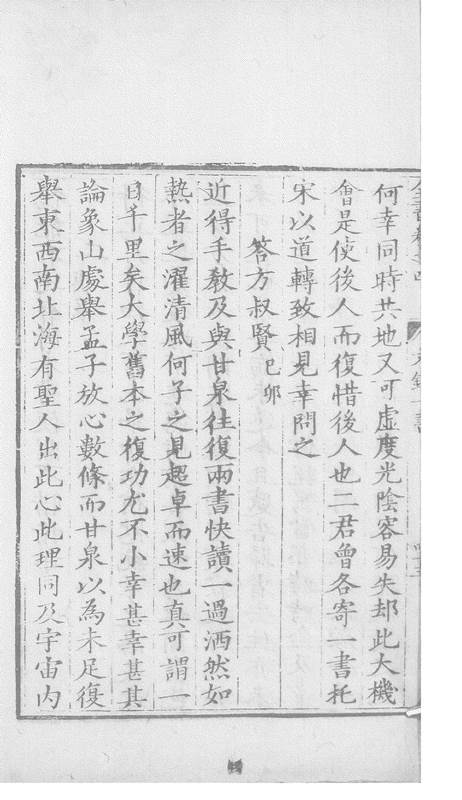 何幸同時共地又可虛度光陰容易失却此大機
會是使後人而復惜後人也二君曾各寄一書托
宋以道轉致相見幸問之
答方叔賢己卯
近得手教及與甘泉往復兩書快讀一過洒然如
熱者之濯清風何子之見超卓而速也真可謂一
日千里矣大學舊本之復功尤不小幸甚幸甚其
論象山處舉孟子放心數條而甘泉以為未足復
舉東西南北海有聖人出此心此理同及宇宙內